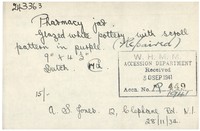 243363
Pharmacy jar.
Glazed white pottery with scroll
pattern in purple (Repaired)
9" x 4 1/2"
Dutch
W.H.M.M.
ACCESSION DEPARTMENT
Received
5 DEP 1941
Accn. No.
15/-
A. G. Jones. 12, Clephane Rd. N.1
28/11/32